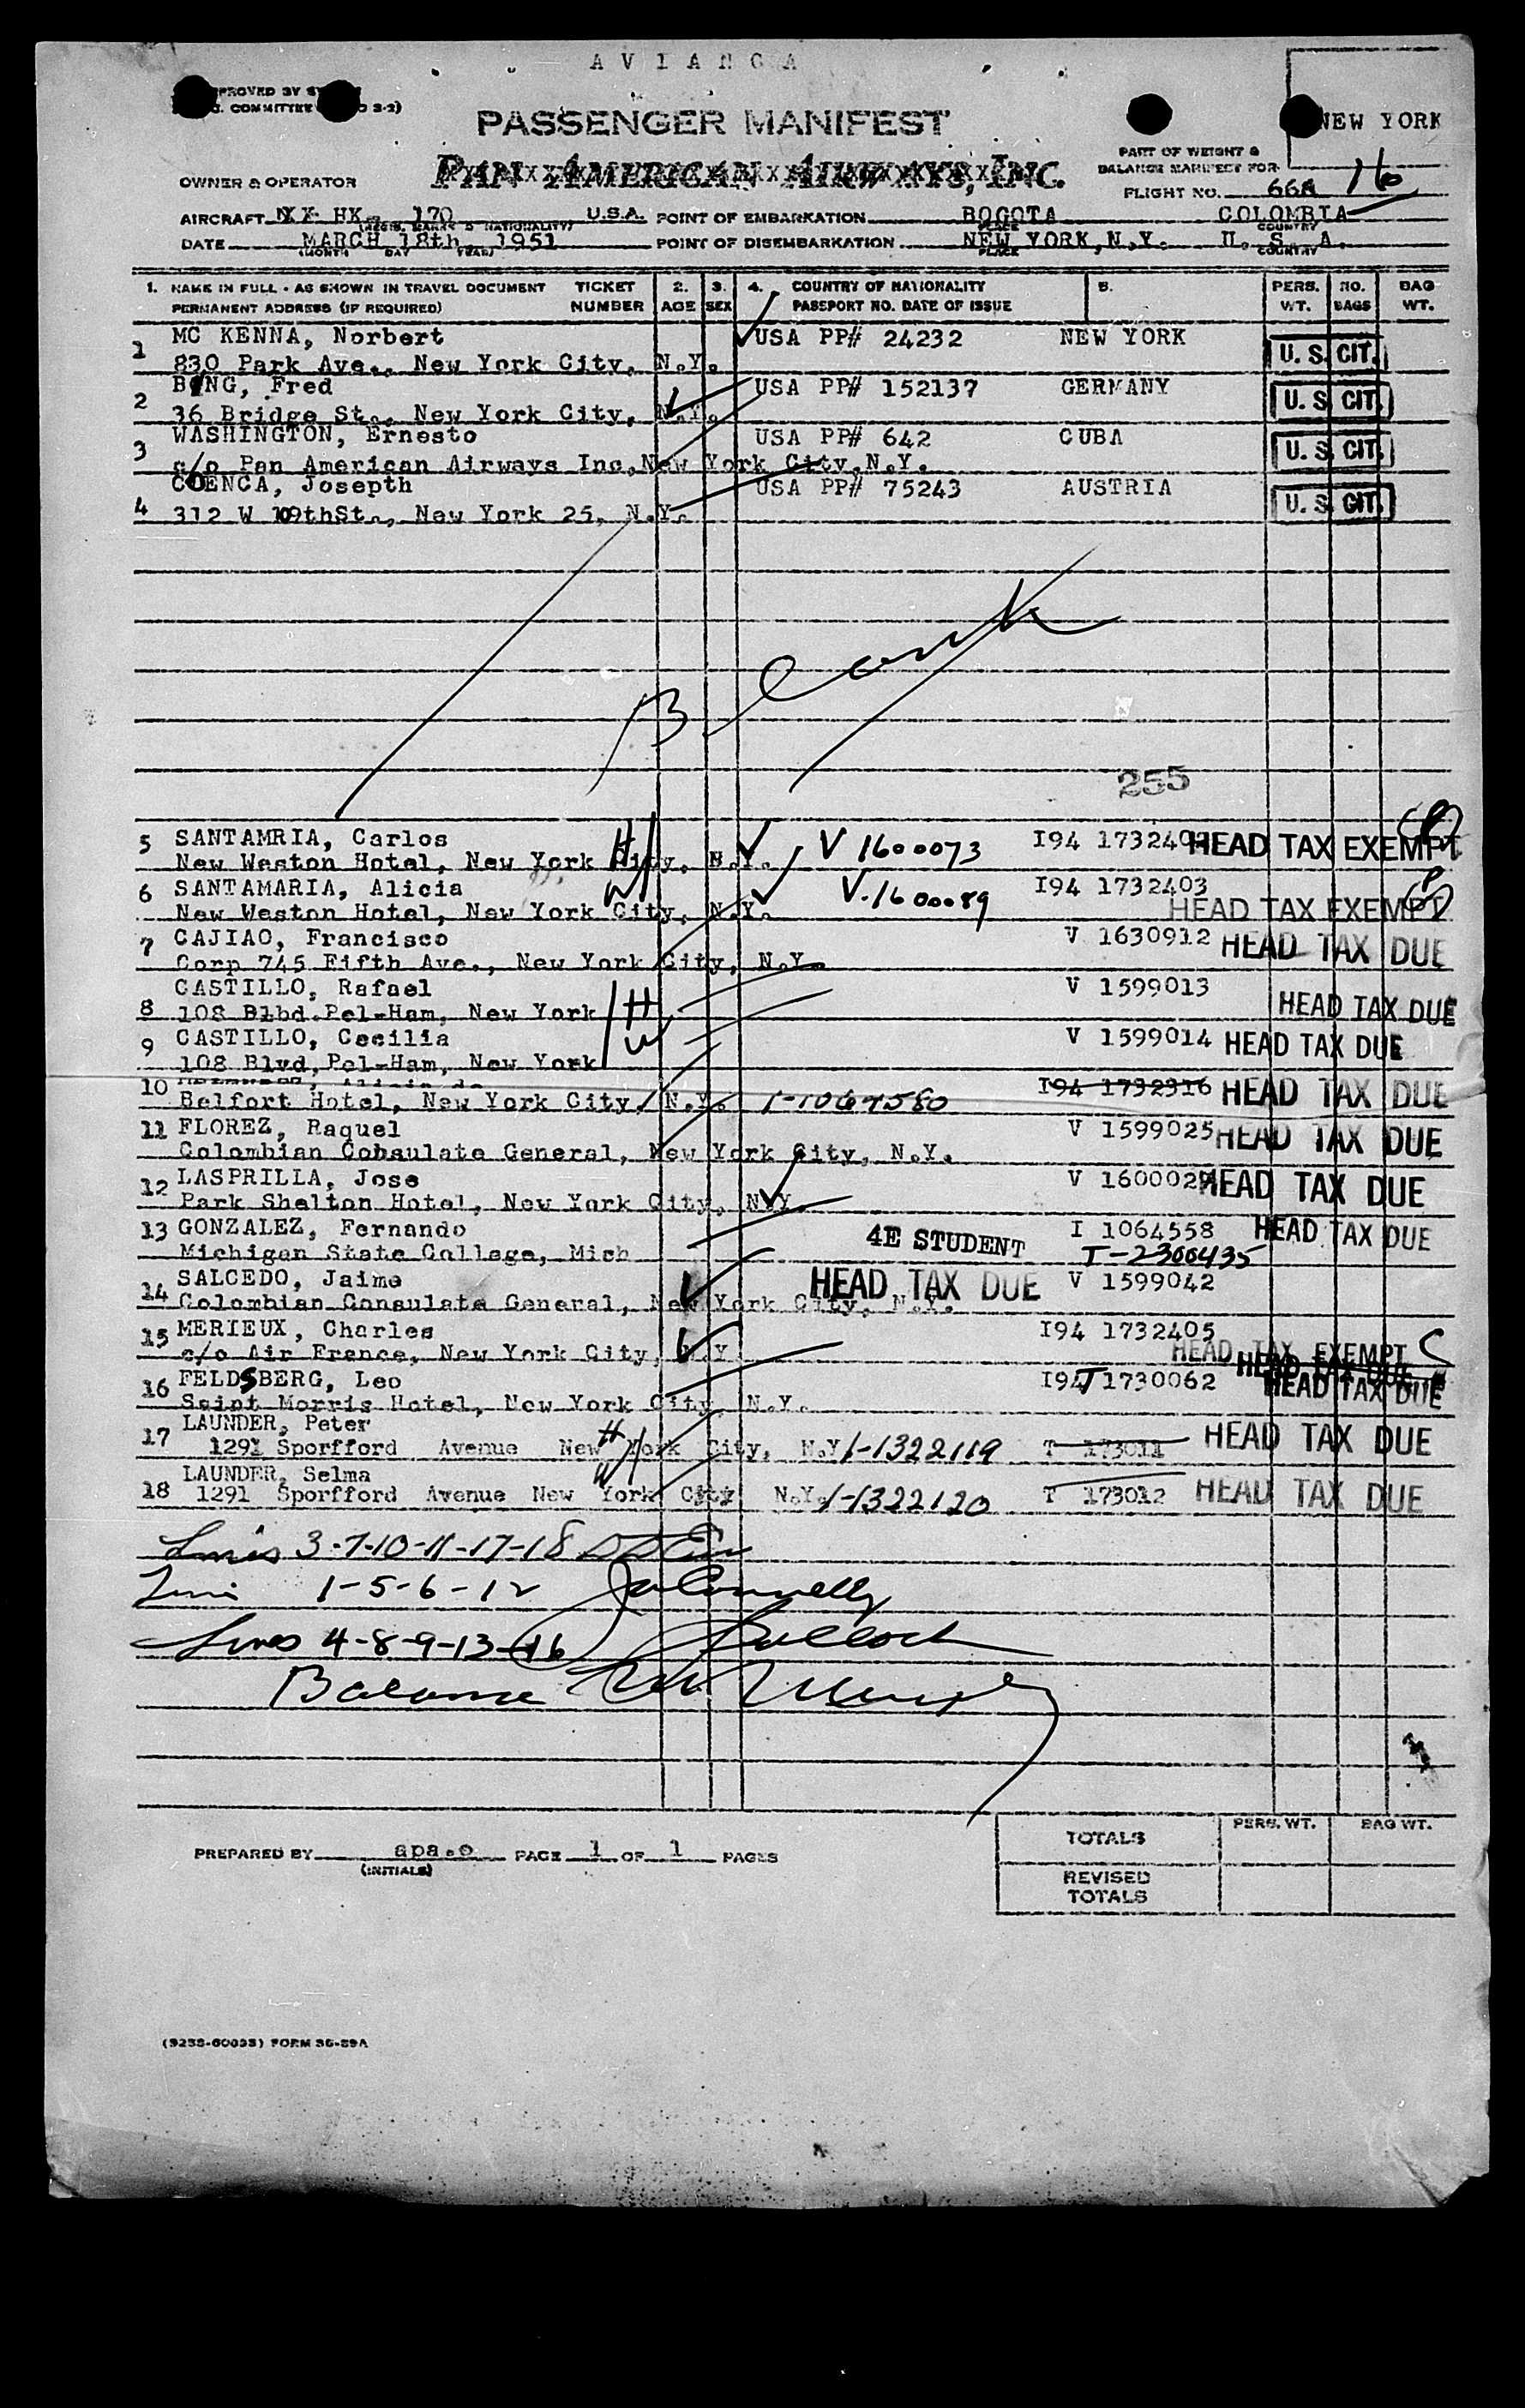 AVIANCA
PROVED BY
COMMITTEE 3-2)
PASSENGER MANIFEST
NEW YORK
PAN AMERICAN AIRWAYS, INC.
PART OF WEIGHT &
BALANCE MANIFEST FOR
OWNER & OPERATOR
FLIGHT NO. 668 16
AIRCRAFT HK - 170 U.S.A. POINT OF EMBARKATION BOGOTA COLOMBIA
(REGIS. MARKS & NATIONALITY) PLACE COUNTRY
DATE MARCH 18th, 1951 POINT OF DISEMBARKATION NEW YORK, N.Y. U. S. A.
(MONTH DAY YEAR) PLACE COUNTRY
1. NAME IN FULL - AS SHOWN IN TRAVEL DOCUMENT TICKET 2. 3. 4. COUNTRY OF NATIONALITY 5. PERS. NO. BAG
PERMANENT ADDRESS (IF REQUIRED) NUMBER AGE SEX PASSPORT NO. DATE OF ISSUE WT. BAGS WT.
1 MC KENNA, Norbert USA PP# 24232 NEW YORK U. S. CIT.
830 Park Ave., New York City, N.Y.
2 BING, Fred USA PP# 152137 GERMANY U. S. CIT.
36 Bridge St., New York City, N.Y.
3 WASHINGTON, Ernesto USA PP# 642 CUBA U. S. CIT.
c/o Pan American Airways Inc, New York City, N.Y.
4 COENCA, Josepth USA PP# 75243 AUSTRIA U. S. CIT.
312 W 109thSt., New York 25, N.Y.
Blank
255
5 SANTAMRIA, Carlos H V 1600073 I94 173240 HEAD TAX EXEMPT
New Weston Hotel, New York City, N.Y.
6 SANTAMARIA, Alicia W V-1600089 I94 1732403
New Weston Hotel, New York City, N.Y. HEAD TAX EXEMPT
7 CAJIAO, Francisco V 1630912 HEAD TAX DUE
Corp 745 Fifth Ave., New York City, N.Y.
8 CASTILLO, Rafael H V 1599013 HEAD TAX DUE
108 Blbd.Pel-Ham, New York
9 CASTILLO, Cecilia W V 1599014 HEAD TAX DUE
108 Blvd, Pel-Ham, New York
10 Alicia de I94 1732316 HEAD TAX DUE
Belfort Hotel, New York City, N.Y. 1-1064580
11 FLOREZ, Raquel V 1599025 HEAD TAX DUE
Colombian Cohsulate General, New York City, N.Y.
12 LASPRILLA, Jose V 160002 HEAD TAX DUE
Park Shelton Hotel, New York City, N.Y.
13 GONZALEZ, Fernando 4E STUDENT I 1064558 HEAD TAX DUE
Michigan State College, Mich T-2300435
14 SALCEDO, Jaime HEAD TAX DUE V 1599042
Colombian Consulate General, New York City, N.Y.
15 MERIEUX, Charles I94 1732405
c/o Air France, New York City, N.Y. HEAD TAX EXEMPT C
HEAD TAX DUE
16 FELDSBERG, Leo I94T 1730062 HEAD TAX DUE
Saint Morris Hotel, New York City, N.Y.
17 LAUNDER, Peter H HEAD TAX DUE
1291 Sporfford Avenue New York City, N.Y. 1-1322119 T 173011
18 LAUNDER, Selma W HEAD TAX DUE
1291 Sporfford Avenue New York City N.Y. 1-1322120 T 173012
Lines 3-7-10-11-17-18
1-5-6-12 Connelly
Lines 4-8-9-13-16 Bullock
Balance Murphy
PREPARED BY apa.o PAGE 1 OF 1 PAGES
(INITIALS)
PERS. WT. BAG WT.
TOTALS
REVISED
TOTALS
(9235-60023) FORM 36-89A